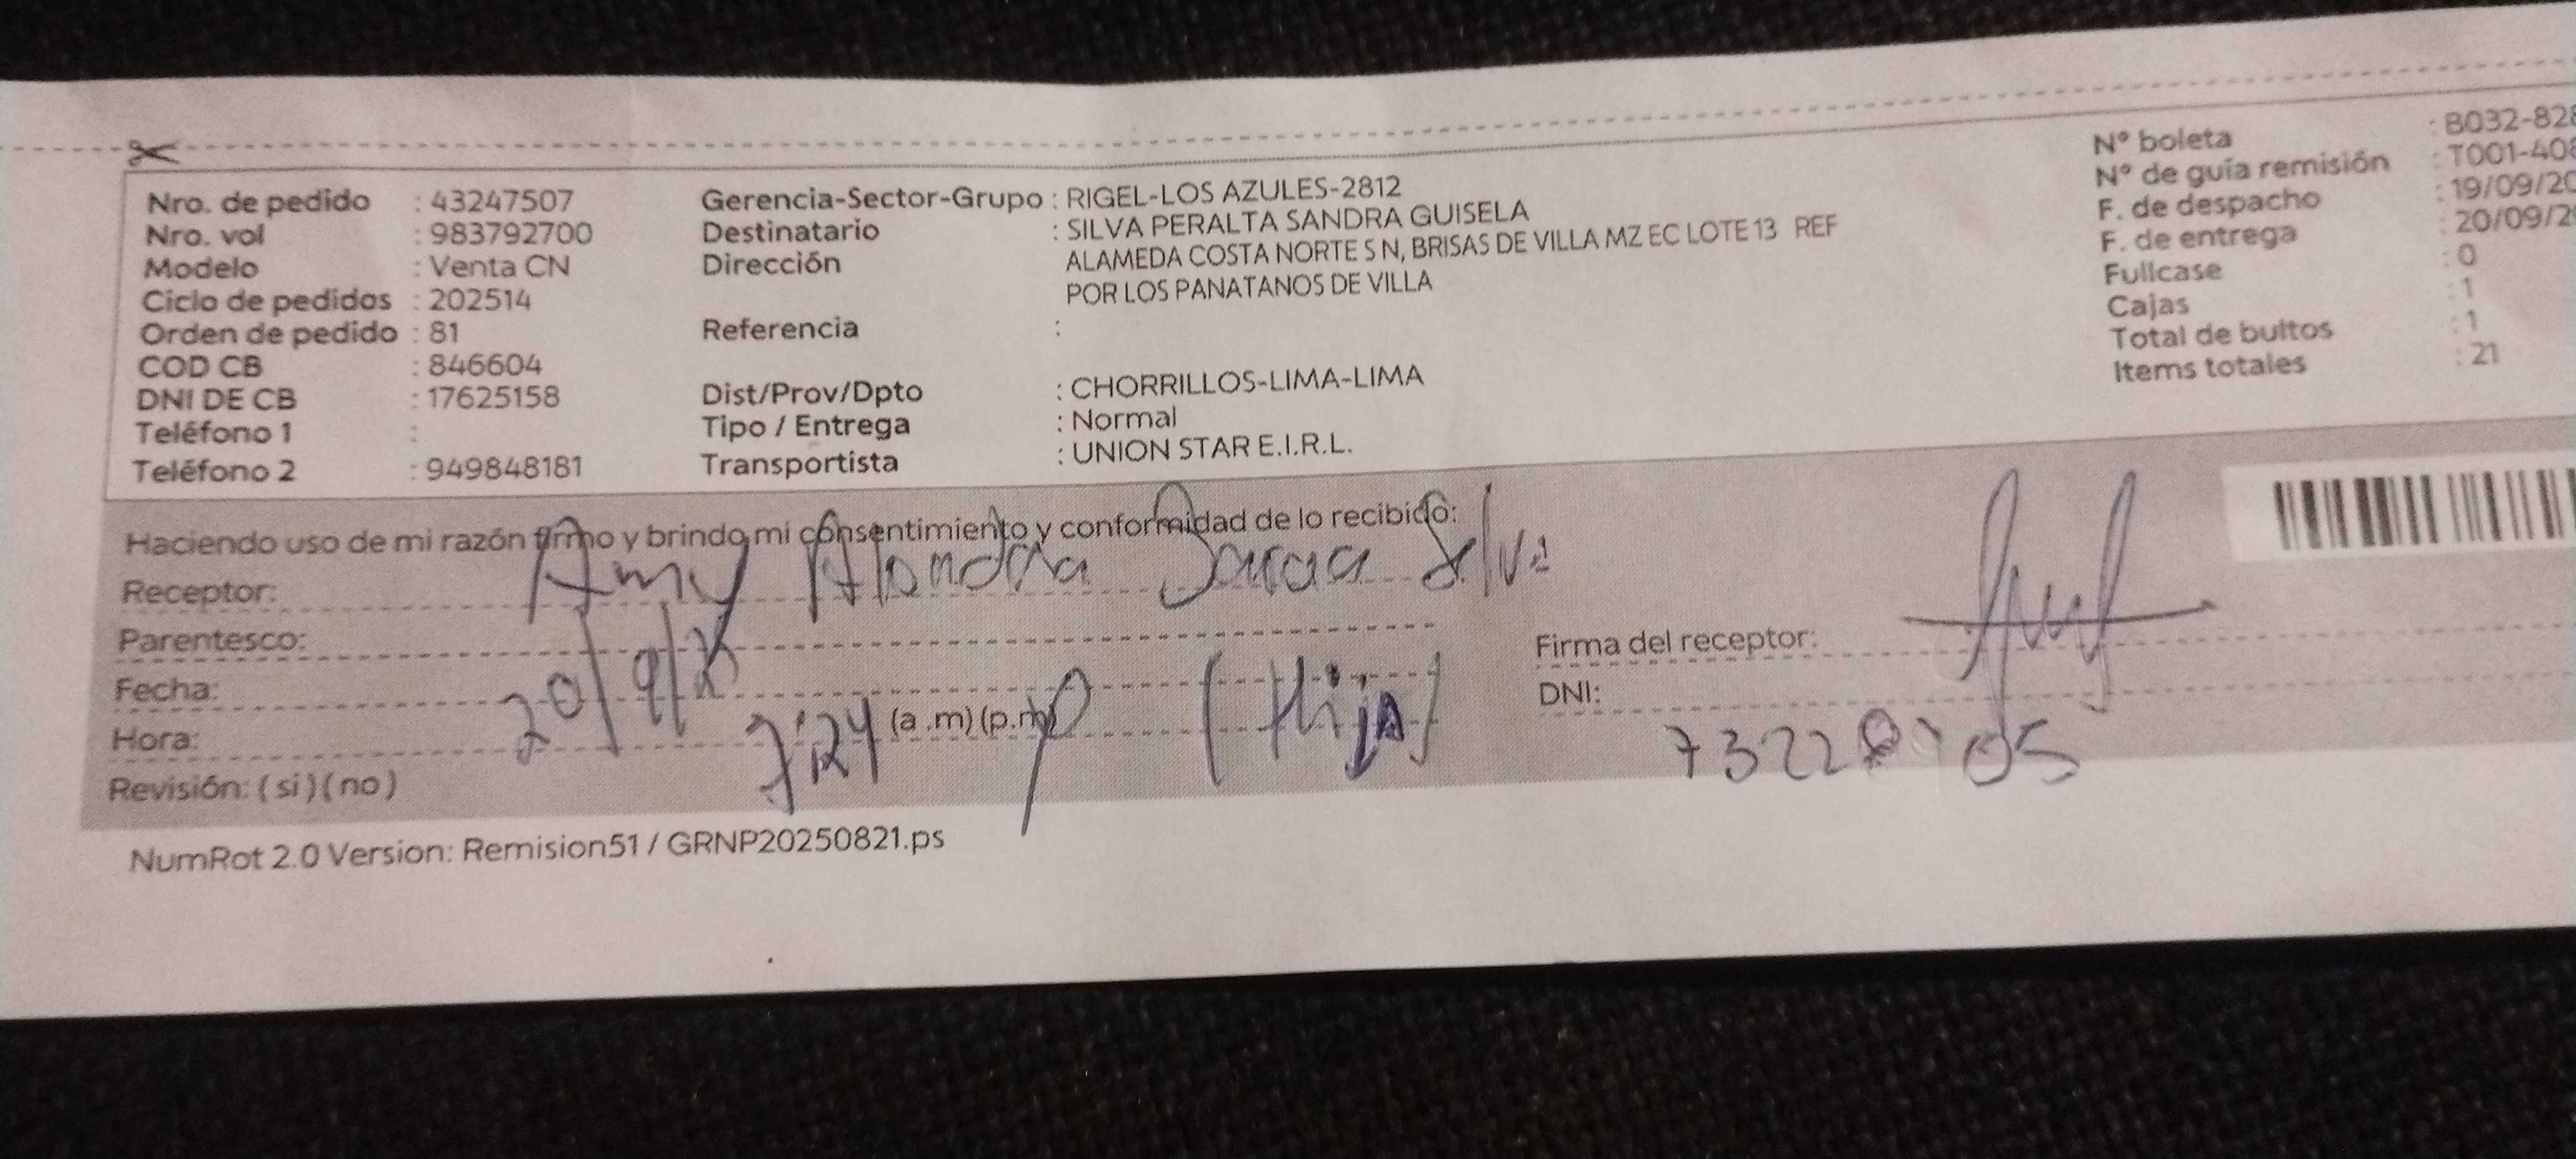 Nro. de pedido : 43247507
Nro. vol : 983792700
Modelo : Venta CN
Ciclo de pedidos : 202514
Orden de pedido : 81
COD CB : 846604
DNI DE CB : 17625158
Teléfono 1 :
Teléfono 2 : 949848181
Gerencia-Sector-Grupo : RIGEL-LOS AZULES-2812
Destinatario : SILVA PERALTA SANDRA GUISELA
Dirección ALAMEDA COSTA NORTE S N, BRISAS DE VILLA MZ EC LOTE 13 REF
POR LOS PANATANOS DE VILLA
Referencia :
Dist/Prov/Dpto : CHORRILLOS-LIMA-LIMA
Tipo / Entrega : Normal
Transportista : UNION STAR E.I.R.L.
N° boleta : B032-828
N° de guía remisión : T001-408
F. de despacho : 19/09/20
F. de entrega : 20/09/2
Fullcase : 0
Cajas : 1
Total de bultos : 1
Items totales : 21
Haciendo uso de mi razón firmo y brindo mi consentimiento y conformidad de lo recibido:
Receptor: Amy Alondra Silva
Parentesco:
Fecha: 20/9/25
Hora: 7:24 (a .m) (p.m) (Hija)
Revisión: ( si ) ( no )
Firma del receptor:
DNI:
NumRot 2.0 Version: Remision51 / GRNP20250821.ps